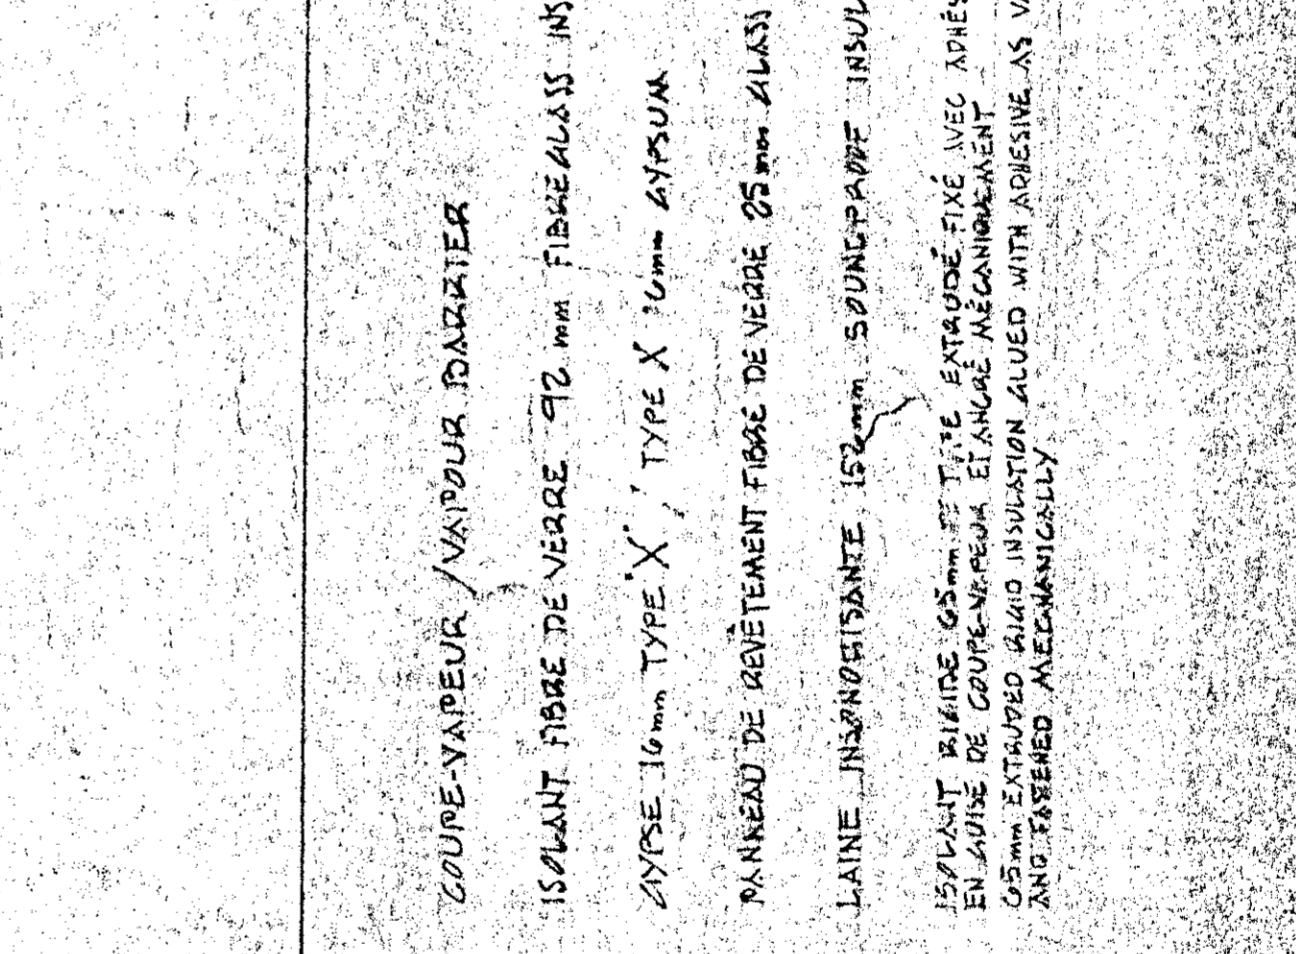 COUPE-VAPEUR / VAPOUR BARRIER
ISOLANT FIBRE DE VERRE 92 mm FIBREGLASS INS
GYPSE 16mm TYPE "X", TYPE X 16mm GYPSUM
PANNEAU DE REVÊTEMENT FIBRE DE VERRE 25 mm GLASS
LAINE INSONORISANTE 152mm SOUNDPROOF INSUL
ISOLANT RIGIDE 65mm DE TYPE EXTRUDÉ FIXÉ AVEC ADHÉS
EN GUISE DE COUPE-VAPEUR ET ANCRÉ MÉCANIQUEMENT
65mm EXTRUDED RIGID INSULATION GLUED WITH ADHESIVE AS VA
AND FASTENED MECHANICALLY